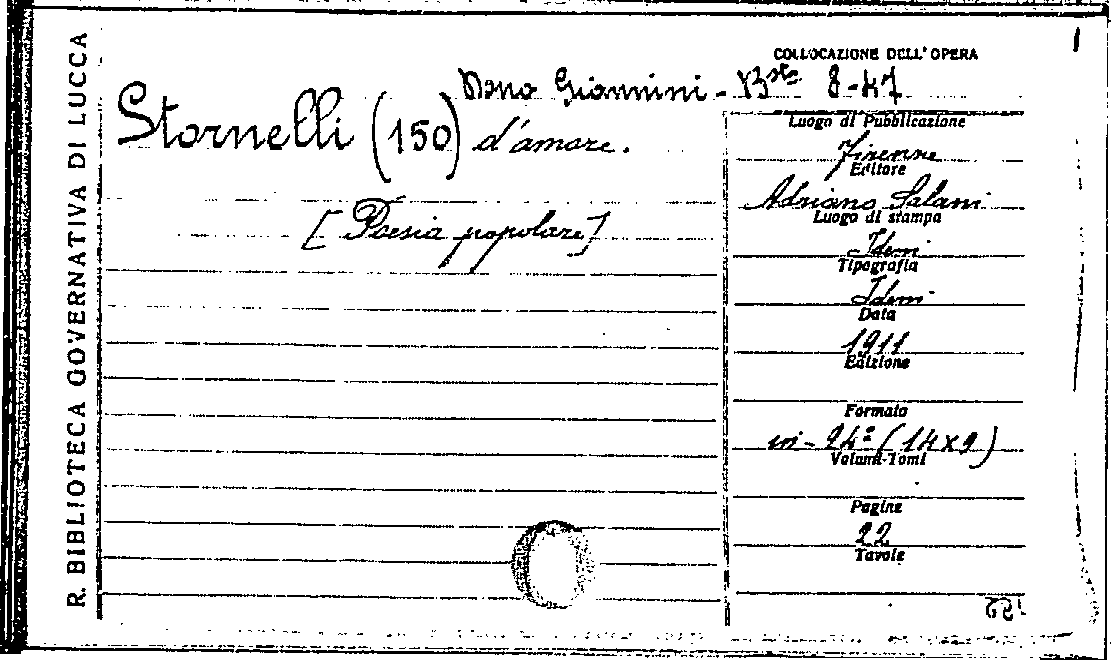 R. BIBLIOTECA GOVERNATIVA DI LUCCA
COLLOCAZIONE DELL'OPERA
Dono Giannini - Bsta 8-47
Stornelli (150) d'amore.
[Poesia popolare]
Luogo di Pubblicazione
Firenze
Editore
Adriano Salani
Luogo di stampa
Idem
Tipografia
Idem
Data
1911
Edizione
Formato
in-24º (14x9)
Volumi-Tomi
Pagine
22
Tavole